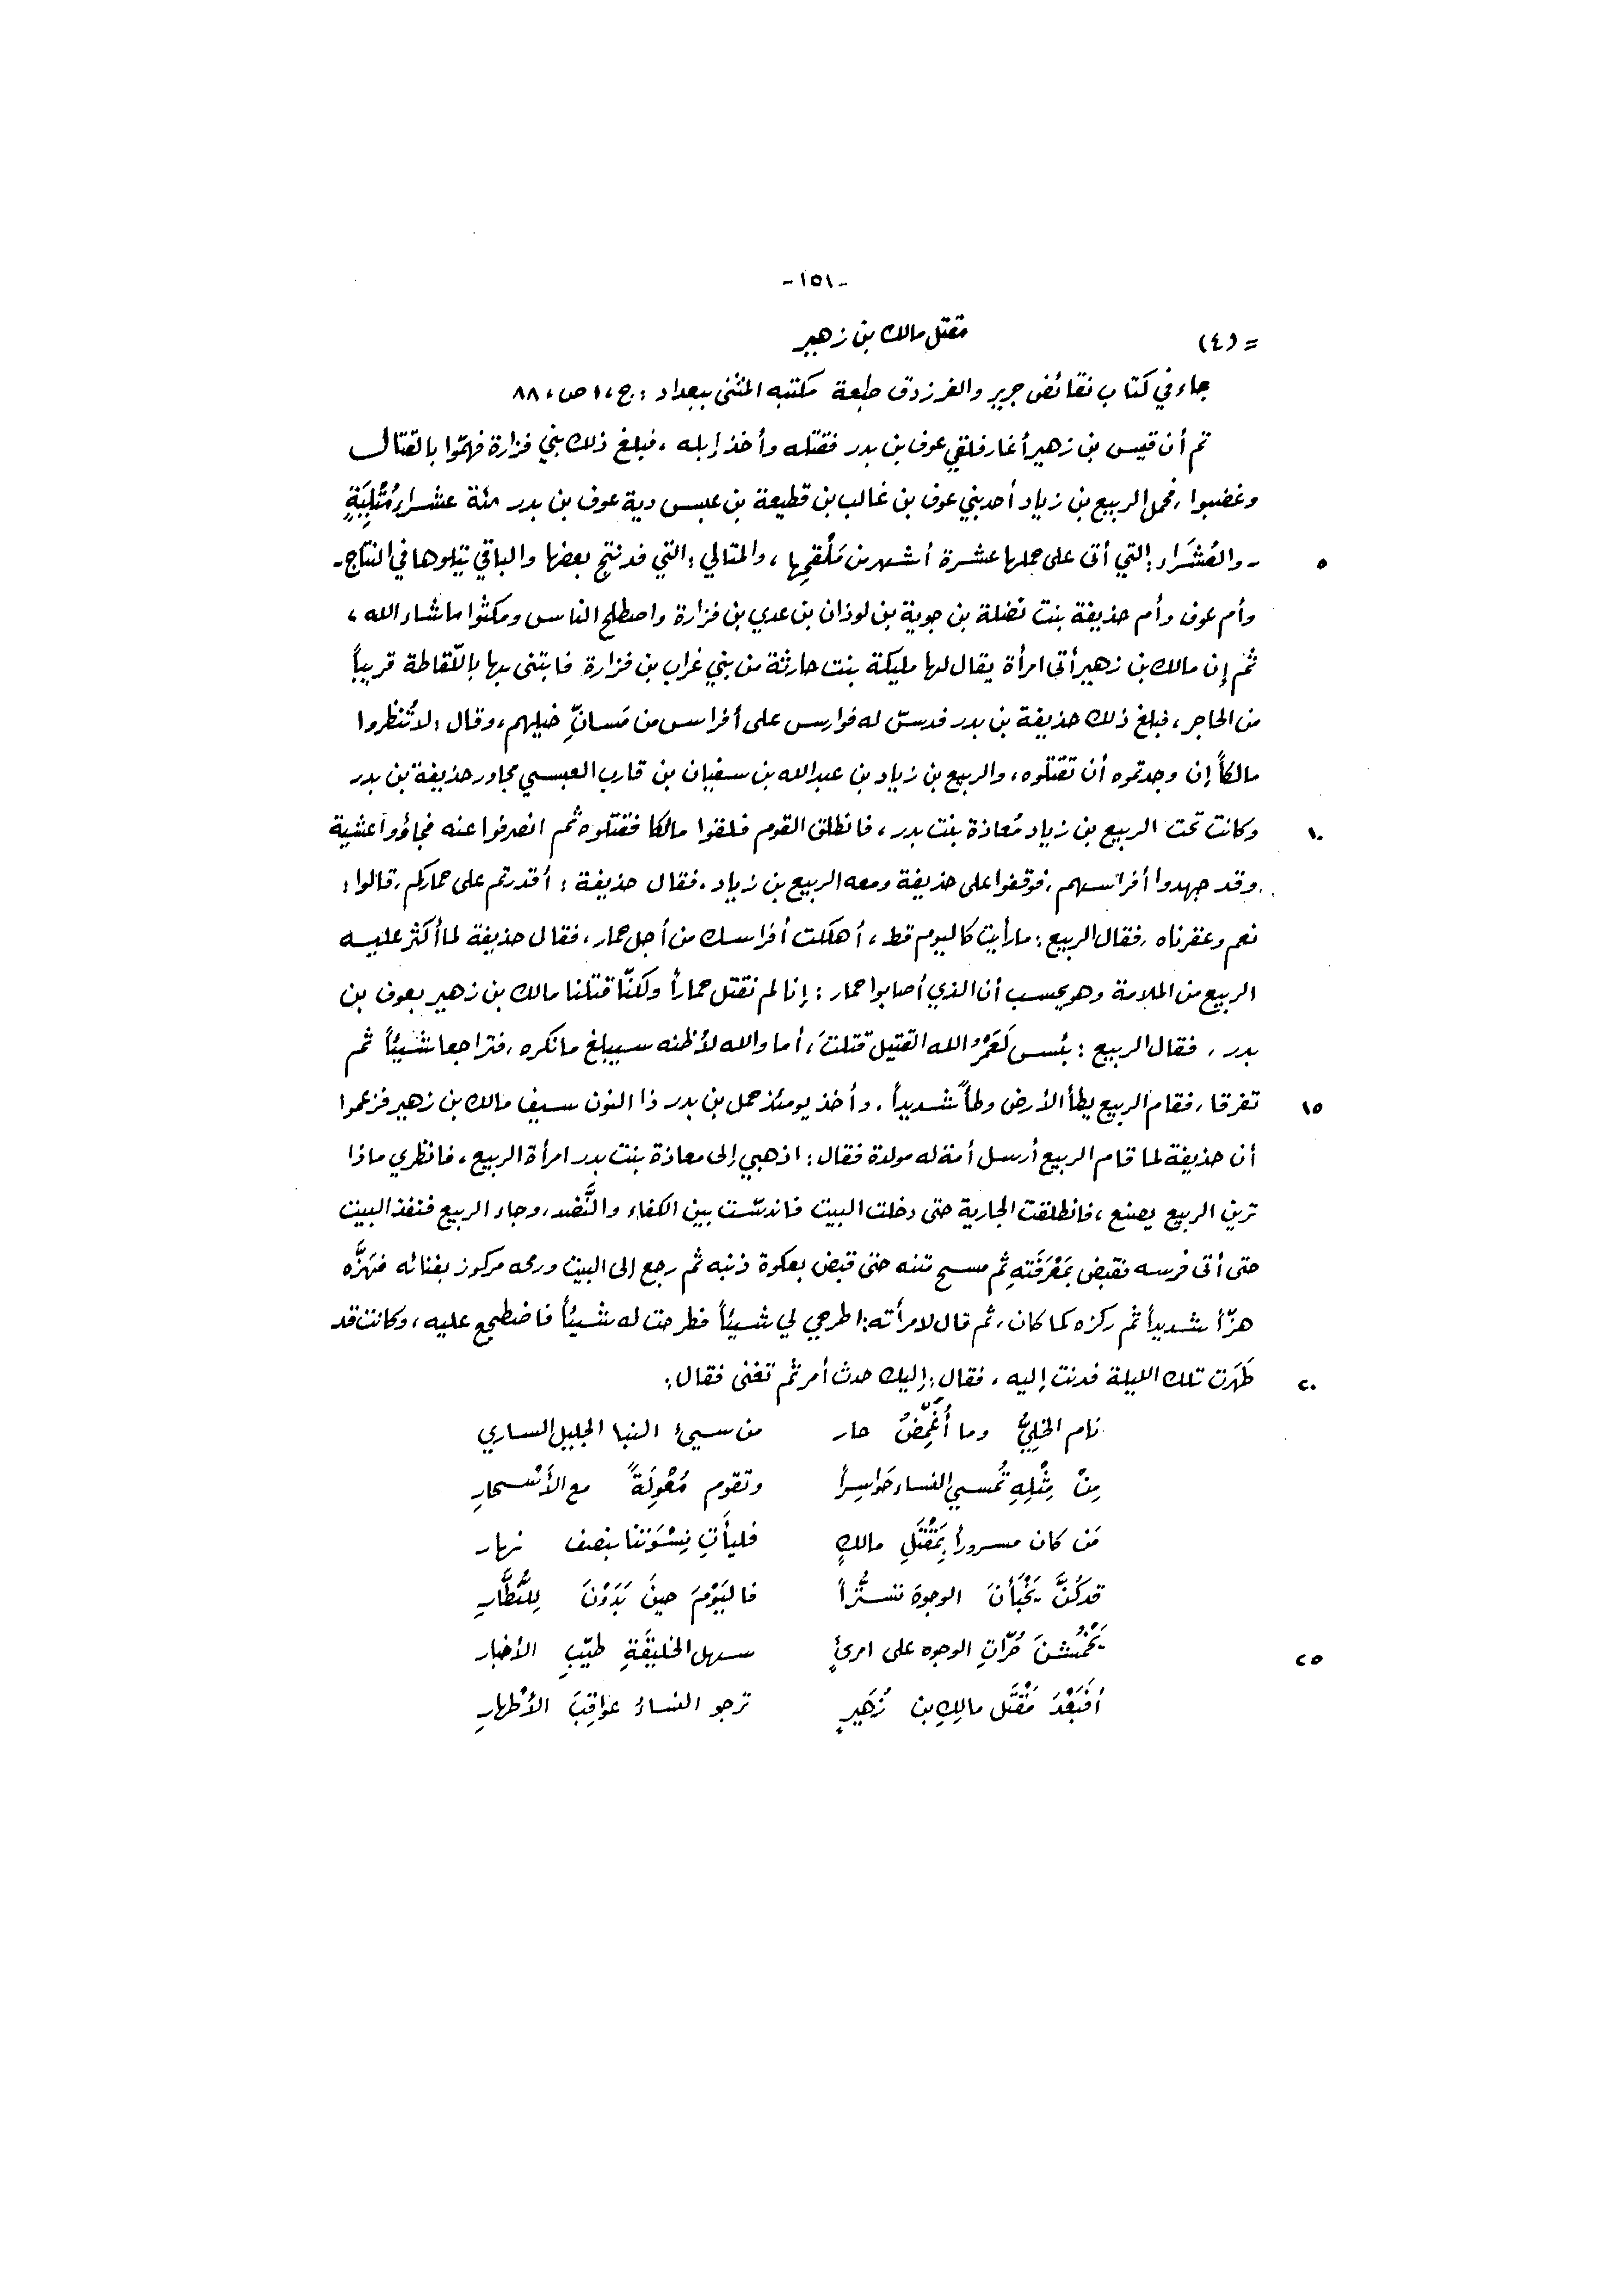 -١٥١-
= (٤) مقتل مالك بن زهير
جاء في كتاب نقائض جرير والفرزدق طبعة مكتبه المثنى ببغداد : ج، ١ ص، ٨٨
ثم أن قيس بن زهير أغار فلقي عوف بن بدر فقتله وأخذ إبله ، فبلغ ذلك بني فزارة فهمّوا بالقتال
وغضبوا ، فحمل الربيع بن زياد أحد بني عوف بن غالب بن قطيعة بن عبس دية عوف بن بدر مئة عشراء مُتْلِيَةٍ
٥ - والعُشَرَاء : التي أتى على حملها عشرة أشهر من مَلْقَحِها ، والمتالي : التي قد نتج بعضها والباقي يتلوها في النتاج -
وأم عوف وأم حذيفة بنت نضلة بن جوية بن لوذان بن عدي بن فزارة واصطلح الناس ومكثوا ما شاء الله ،
ثم إن مالك بن زهير أتى امرأة يقال لها مليكة بنت حارثة من بني غراب بن فزارة فابتنى بها باللّقاطة قريباً
من الحاجر ، فبلغ ذلك حذيفة بن بدر فدسّ له فوارس على أفراس من مَسانِّ خيلهم ، وقال : لا تُنظروا
مالكاً إن وجدتموه أن تقتلوه ، والربيع بن زياد بن عبدالله بن سفيان بن قارب العبسي مجاور حذيفة بن بدر
١٠ وكانت تحت الربيع بن زياد مُعاذة بنت بدر ، فانطلق القوم فلقوا مالكا فقتلوه ثم انصرفوا عنه فجاؤوا عشية
وقد جهدوا أفراسهم ، فوقفوا على حذيفة ومعه الربيع بن زياد . فقال حذيفة : أقدرتم على حماركم ، قالوا :
نعم وعقرناه ، فقال الربيع : ما رأيت كاليوم قط ، أهلكت أفراسك من أجل حمار ، فقال حذيفة لما أكثر عليه
الربيع من الملامة وهو يحسب أن الذي أصابوا حمار : إنا لم نقتل حماراً ولكنّا قتلنا مالك بن زهير بعوف بن
بدر ، فقال الربيع : بئس لَعَمْرُ الله القتيل قتلتَ ، أما والله لأظنه سيبلغ ما نكره ، فتراجعا شيئاً ثم
١٥ تفرقا ، فقام الربيع يطأ الأرض وطأً شديداً . وأخذ يومئذ حمل بن بدر ذا النون سيف مالك بن زهير فزعموا
أن حذيفة لما قام الربيع أرسل أمة له مولدة فقال : اذهبي إلى معاذة بنت بدر امرأة الربيع ، فانظري ماذا
ترين الربيع يصنع ، فانطلقت الجارية حتى دخلت البيت فاندسّت بين الكفاء والنَّضد ، وجاء الربيع فنفذ البيت
حتى أتى فرسه فقبض بمَعْرَفَتهِ ثم مسح متنه حتى قبض بعكوة ذنبه ثم رجع إلى البيت ورمحه مركوز بفنائه فهَزَّه
هزّاً شديداً ثم ركزه كما كان ، ثم قال لامرأته : اطرحي لي شيئاً فطرحت له شيئاً فاضطجع عليه ، وكانت قد
٢٠ طَهَرَت تلك الليلة فدنت إليه ، فقال : إليك حدث أمر ثم تغنى فقال :
نام الخَلِيُّ وما أُغَمِّضُ حار من سيئ النبا الجليل الساري
مِنْ مِثْلِهِ تُمسي النساء حَواسِراً وتقوم مُعْوِلَةً مع الأَسْحارِ
مَن كان مسروراً بِمَقْتَلِ مالكٍ فليأَتِ نِسْوَتنا بنصف نهار
قد كُنَّ يَخْبَأْنَ الوجوهَ تستُّراً فاليَوْمَ حينَ بَدَوْنَ لِلنُّظَّارِ
٢٥ يَخْمُشْنَ حُرّاتِ الوجوه على امرئٍ سهل الخليقَةِ طيّبِ الأخبار
أفَبَعْدَ مَقْتَل مالِكِ بن زُهَيرٍ ترجو النساءُ عَواقِبَ الأطْهارِ